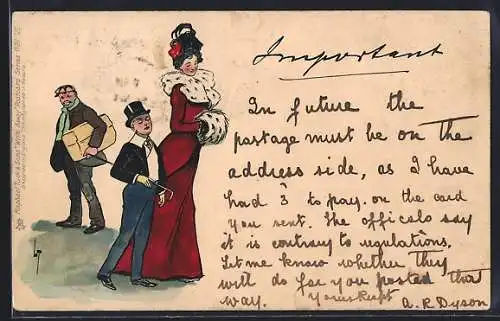 Important
In future the
postage must be on the
address side, as I have
had 3 to pay. on the card
you sent. The officals say
it is contrary to regulations.
Let me know whether they
will do for you posted that
way.
A. R Dyson
Raphael Tuck & Sons' "Write Away" Postcard Series